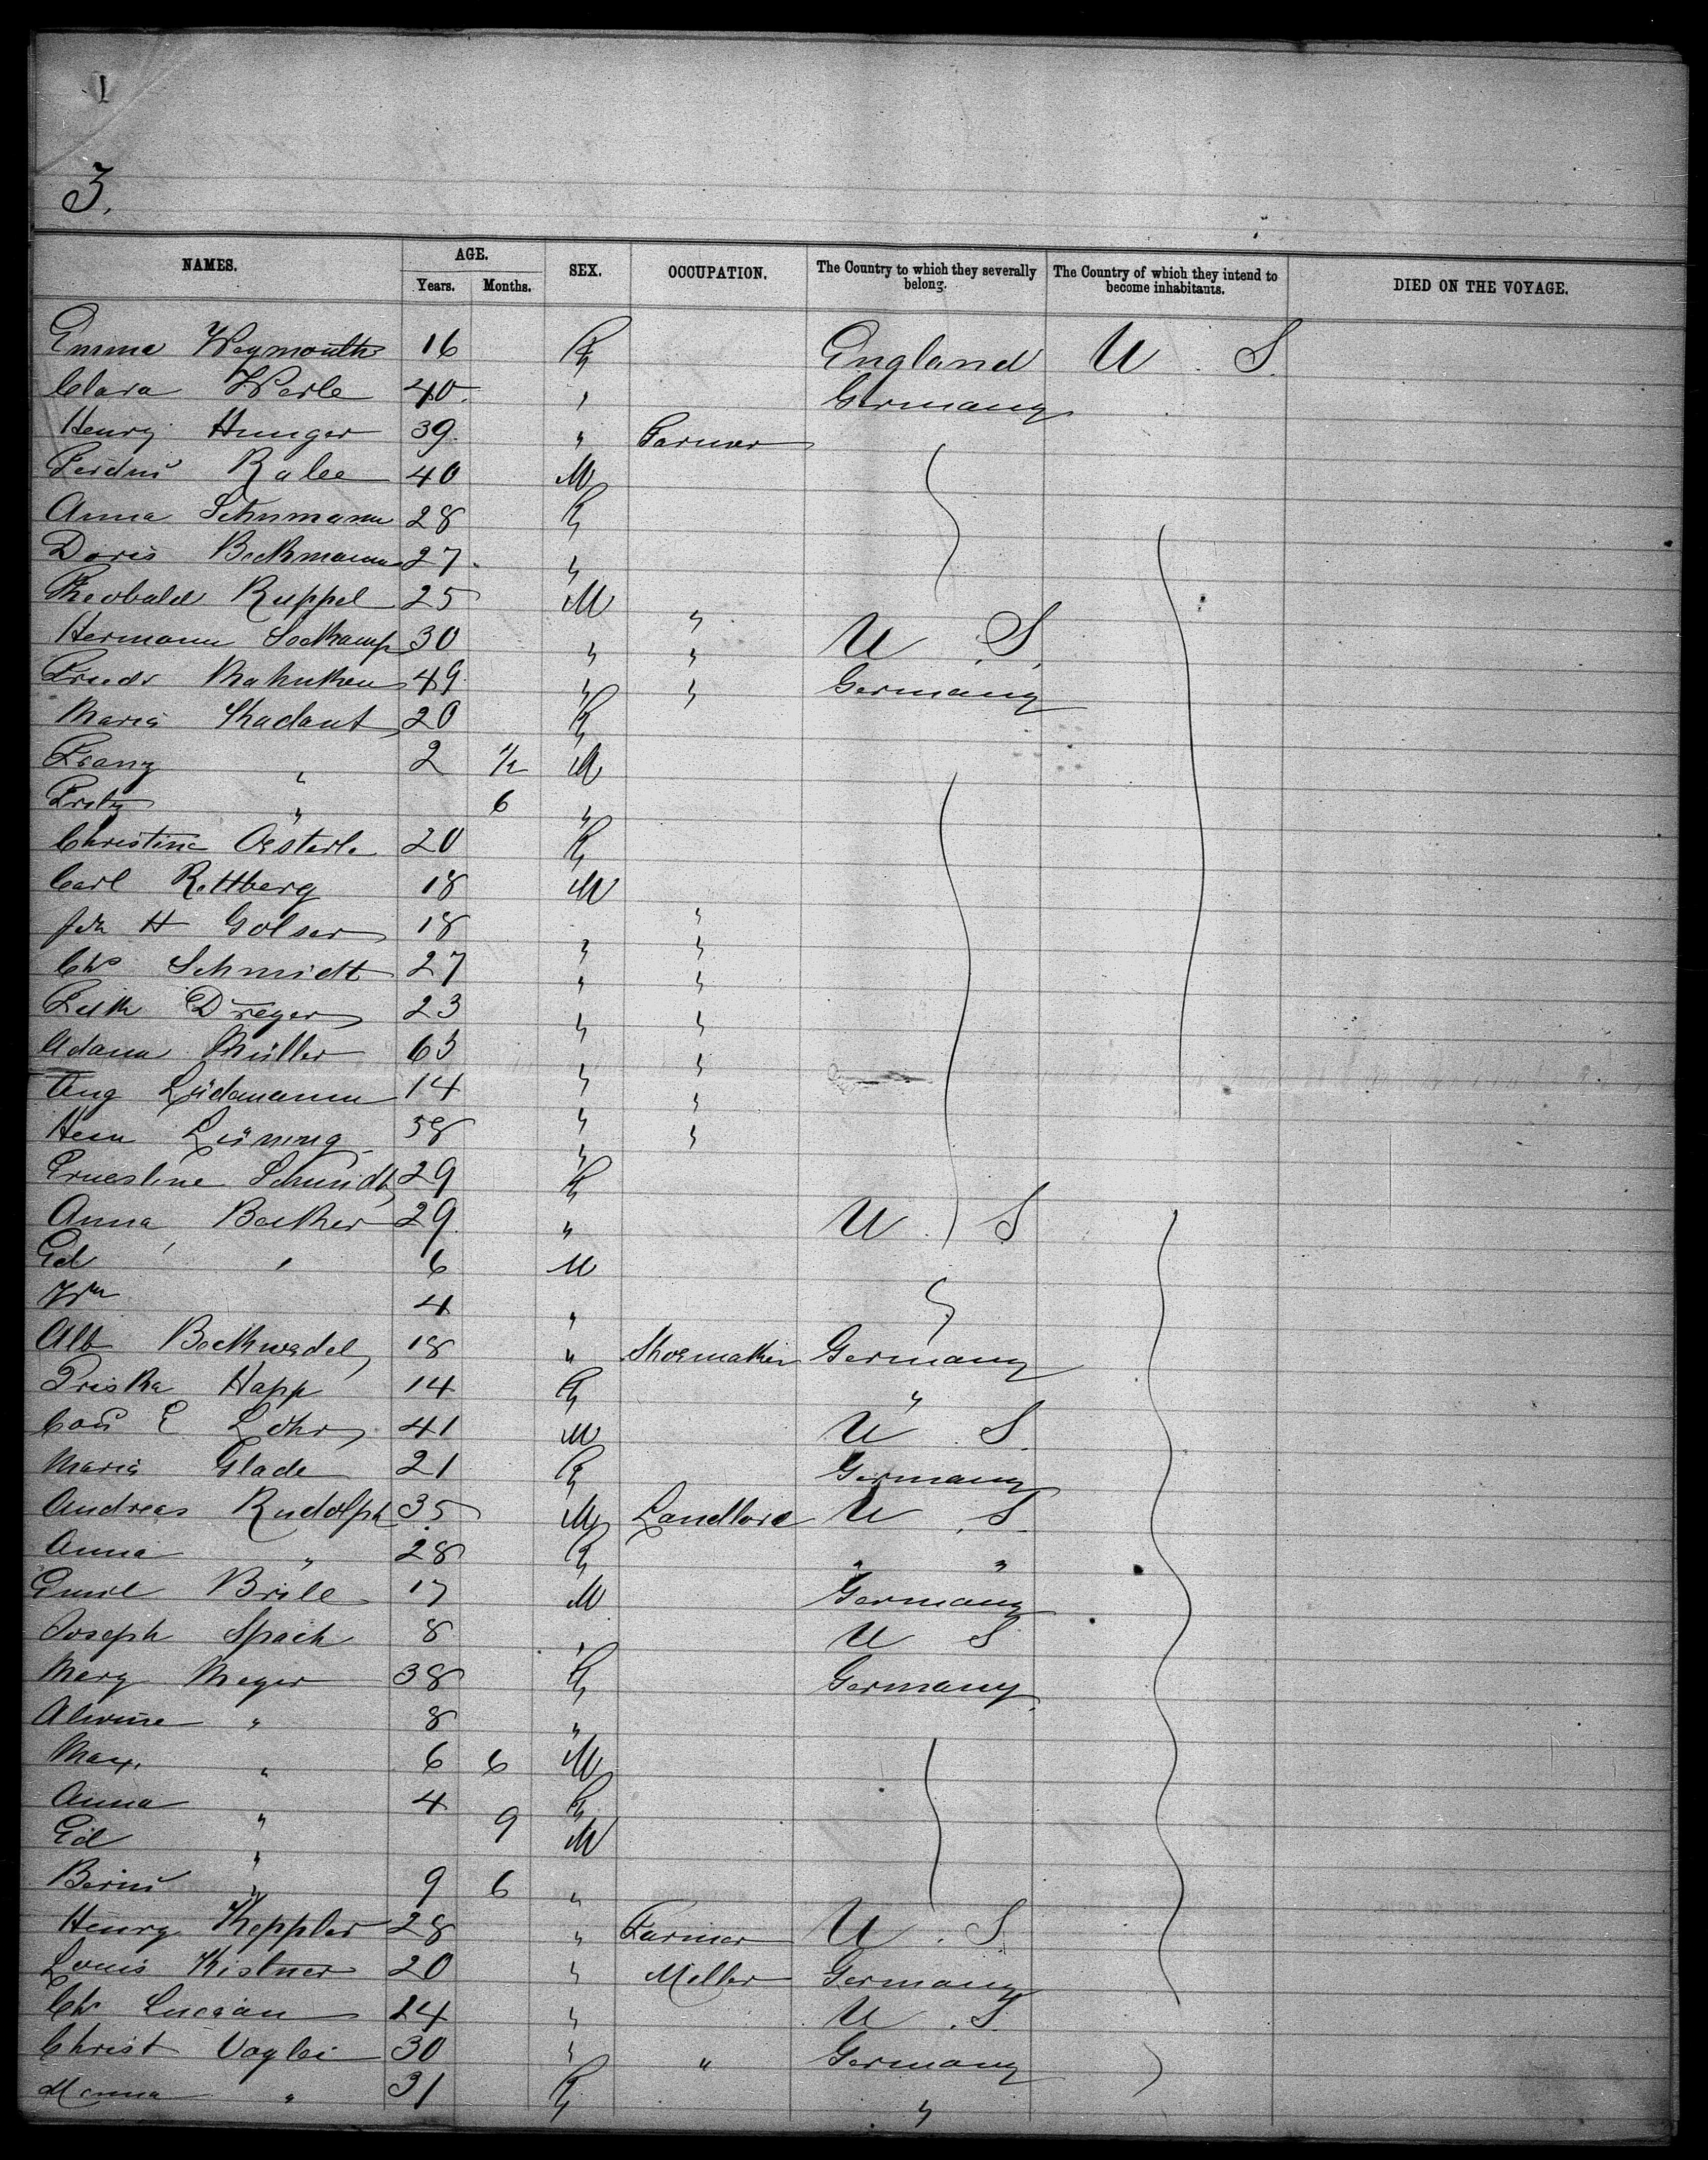 1
3.
NAMES. AGE. SEX. OCCUPATION. The Country to which they severally belong. The Country of which they intend to become inhabitants. DIED ON THE VOYAGE.
Years. Months.
Emma Weymouth 16 F England U S
Clara Werle 40 " Germany
Henry Hunger 39 " Farmer
Ferdin Ralee 40 M
Anna Schumann 28 F
Doris Beckmann 27 "
Theobald Ruppel 25 M "
Hermann Seekamp 30 " " U S
Friedr Mahnken 49 " " Germany
Maria Skadant 20 F
Franz " 2 ½ M
Fritz " 6 "
Christine Oesterle 20 F
Carl Rettberg 18 M "
Joh H Golser 18 " "
Chs Schmidt 27 " "
Dreyer 23 " "
Adam Müller 63 " "
Aug Lüdemann 14 " "
Herm Lüning 58 " "
Ernestine Schmidt 29 F
Anna Becker 29 " U S
Ed " 6 M
Wm 4 "
Alb Beckwedel 18 " Shoemaker Germany
Priska Happ 14 F "
E Lohr 41 M U S
Maria Glade 21 F Germany
Andreas Rudolph 35 M Landlord U S
Anna " 28 F " "
Emil Brüll 17 M Germany
Joseph Spach 8 " U S
Mary Meyer 38 F Germany
Alwine " 8 "
Max " 6 6 M
Anna " 4 F
Ed " 9 M
" 9 6 "
Henry Keppler 28 " Farmer U S
Louis Kistner 20 " Miller Germany
Chr Lucian 24 " U S
Christ Voglei 30 " " Germany
Minna " 31 F "